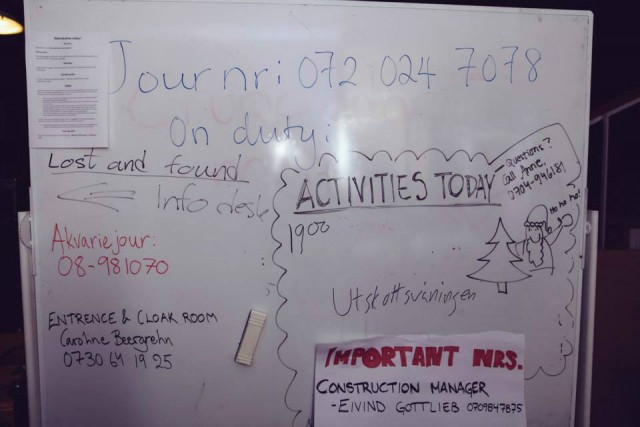 Journr: 072 024 7078
On duty:
Lost and found
Info desk
Akvariejour:
08-981070
ENTRENCE & CLOAK ROOM
Caroline
0730 61 19 25
ACTIVITIES TODAY
1900
Questions?
Call Anne.
0704-946181
Ho Ho Ho!
Utskottsvåningen
IMPORTANT NRS.
CONSTRUCTION MANAGER
-EIVIND GOTTLIEB 0709847875